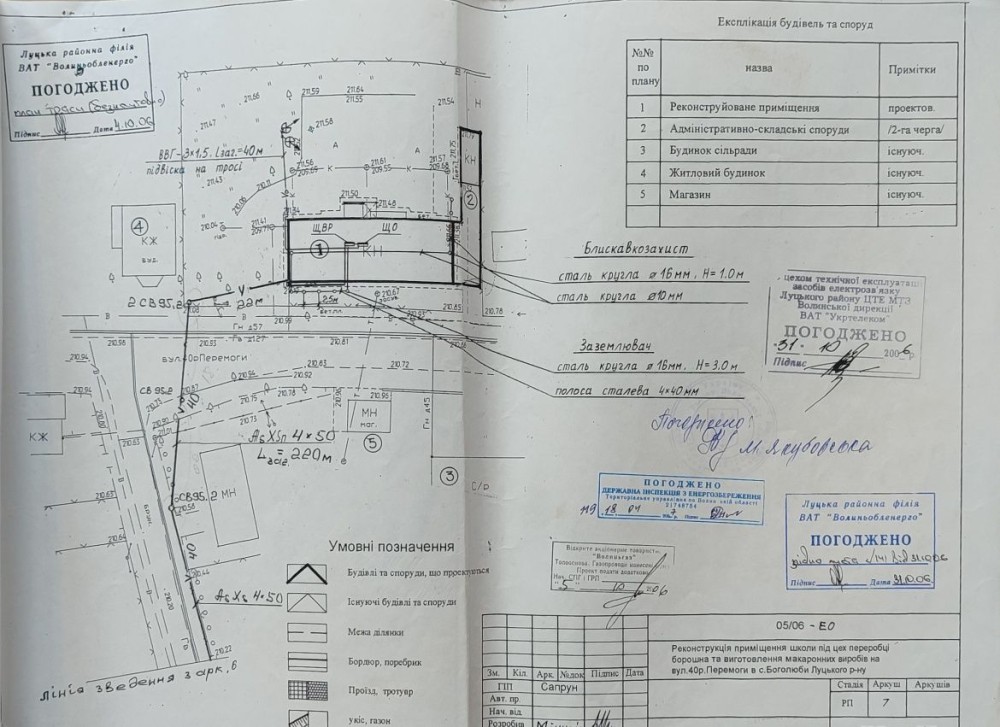 Луцька районна філія
ВАТ "Волиньобленерго"
ПОГОДЖЕНО
план траси
Підпис Дата 4.10.06
ВВГ-3×1,5. Lзаг.=40м
підвіска на тросі
Експлікація будівель та споруд
№№ по плану назва Примітки
1 Реконструйоване приміщення проектов.
2 Адміністративно-складські споруди /2-га черга/
3 Будинок сільради існуюч.
4 Житловий будинок існуюч.
5 Магазин існуюч.
211.59
211.64
211.55
211.66
211.54
211.47
211.58
211.56
211.61
209.55
211.57
209.68
211.43
210.11
210.06
211.50
211.48
211.34
211.75
КН
2
4
КЖ
210.04
211.41
ЩВР ЩО
1 КН
2 СВ95.2
22м
2,5м
210.67
210.99
210.85
210.78
Гн д57
Гв д127
210.98
210.93
210.81
вул.40р Перемоги
210.94
210.83
210.72
210.92
210.94
СВ95.2
210.78
210.75
210.73
40
210.95
МН
маг.
5
Гн д45
КЖ
210.63
AsXSn 4×50
Lзаг. = 220м
3
С/р
СВ95.2
МН
210.62
210.58
210.64
40
AsXs 4×50
210.22
Лінія зведення з арк. 6
Блискавкозахист
сталь кругла ø 16мм, H=1.0м
сталь кругла ø10мм
Заземлювач
сталь кругла ø 16мм, H=3.0м
полоса сталева 4×40мм
цехом технічної експлуатації
засобів електрозв'язку
Луцького району ЦТЕ МТЗ
Волинської дирекції
ВАТ "Укртелеком"
ПОГОДЖЕНО
31. 10 2006р.
Підпис
Погоджено:
М. Якубовська
ПОГОДЖЕНО
ДЕРЖАВНА ІНСПЕКЦІЯ З ЕНЕРГОЗБЕРЕЖЕННЯ
Територіальне управління по Волинській області
21740754
Луцька районна філія
ВАТ "Волиньобленерго"
ПОГОДЖЕНО
Підпис Дата 31.10.06
Відкрите акціонерне товариство
"Волиньгаз"
Умовні позначення
Будівлі та споруди, що проектуються
Існуючі будівлі та споруди
Межа ділянки
Бордюр, поребрик
Проїзд, тротуар
укіс, газон
05/06 - ЕО
Реконструкція приміщення школи під цех переробці
борошна та виготовлення макаронних виробів на
вул.40р.Перемоги в с.Боголюби Луцького р-ну
Зм. Кіл. Арк. №док Підпис Дата
ГІП Сапрун
Авт. пр
Нач. від
Розробив
Стадія Аркуш Аркушів
РП 7